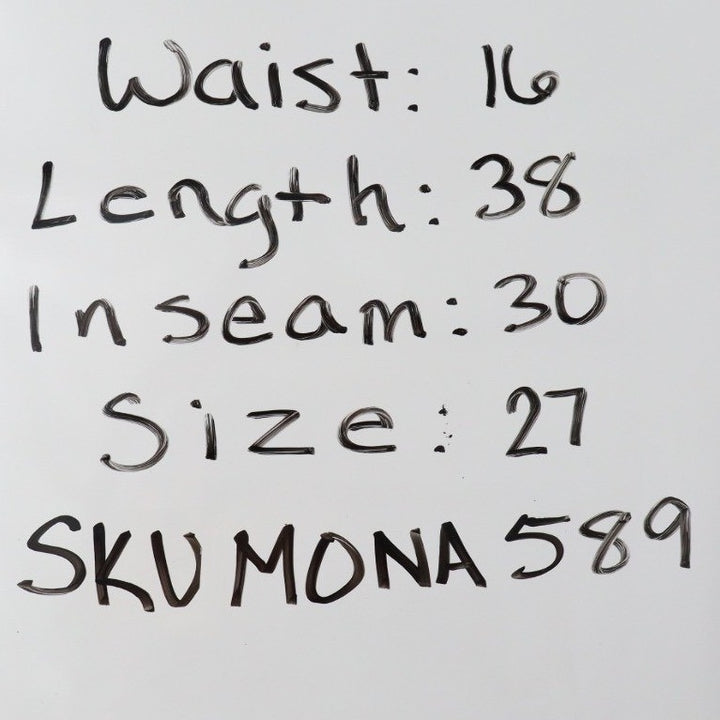 Waist: 16
Length: 38
Inseam: 30
Size: 27
SKU MONA 589